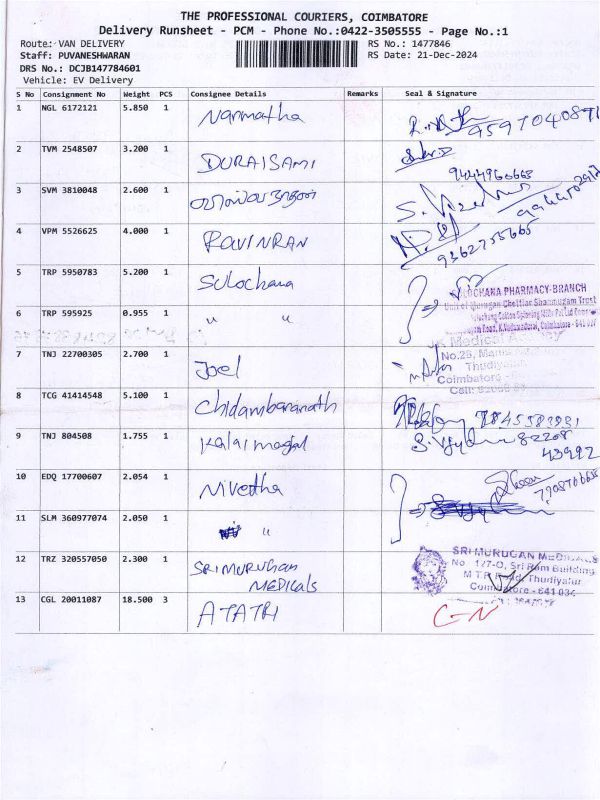 THE PROFESSIONAL COURIERS, COIMBATORE
Delivery Runsheet - PCM - Phone No.:0422-3505555 - Page No.:1
Route: VAN DELIVERY RS No.: 1477846
Staff: PUVANESHWARAN RS Date: 21-Dec-2024
DRS No.: DCJB147784601
Vehicle: EV Delivery
S No Consignment No Weight PCS Consignee Details Remarks Seal & Signature
1 NGL 6172121 5.850 1 Narmatha
2 TVM 2548507 3.200 1 DURAISAMI
9444960663
3 SVM 3810048 2.600 1
4 VPM 5526625 4.000 1 RAVINRAN
9362755665
5 TRP 5950783 5.200 1 Sulochana
SULOCHANA PHARMACY-BRANCH
Unit of Murugan Chettiar Shanmugam Trust
6 TRP 595925 0.955 1 " "
JK Medical
7 TNJ 22700305 2.700 1 Joel
No.25,
Thudiyal
Coimbatore
8 TCG 41414548 5.100 1 Chidambaranath 9845583931
9 TNJ 804508 1.755 1 Kalaimagal 82208
43992
10 EDQ 17700607 2.054 1 Nivetha
11 SLM 360977074 2.050 1 "
12 TRZ 320557050 2.300 1 SRI MURUGAN
MEDICALS
SRI MURUGAN MEDICALS
No 177-O, Sri Ram Building
M.T.P. Road, Thudiyalur
Coimbatore - 641 034
13 CGL 20011087 18.500 3 ATATRI